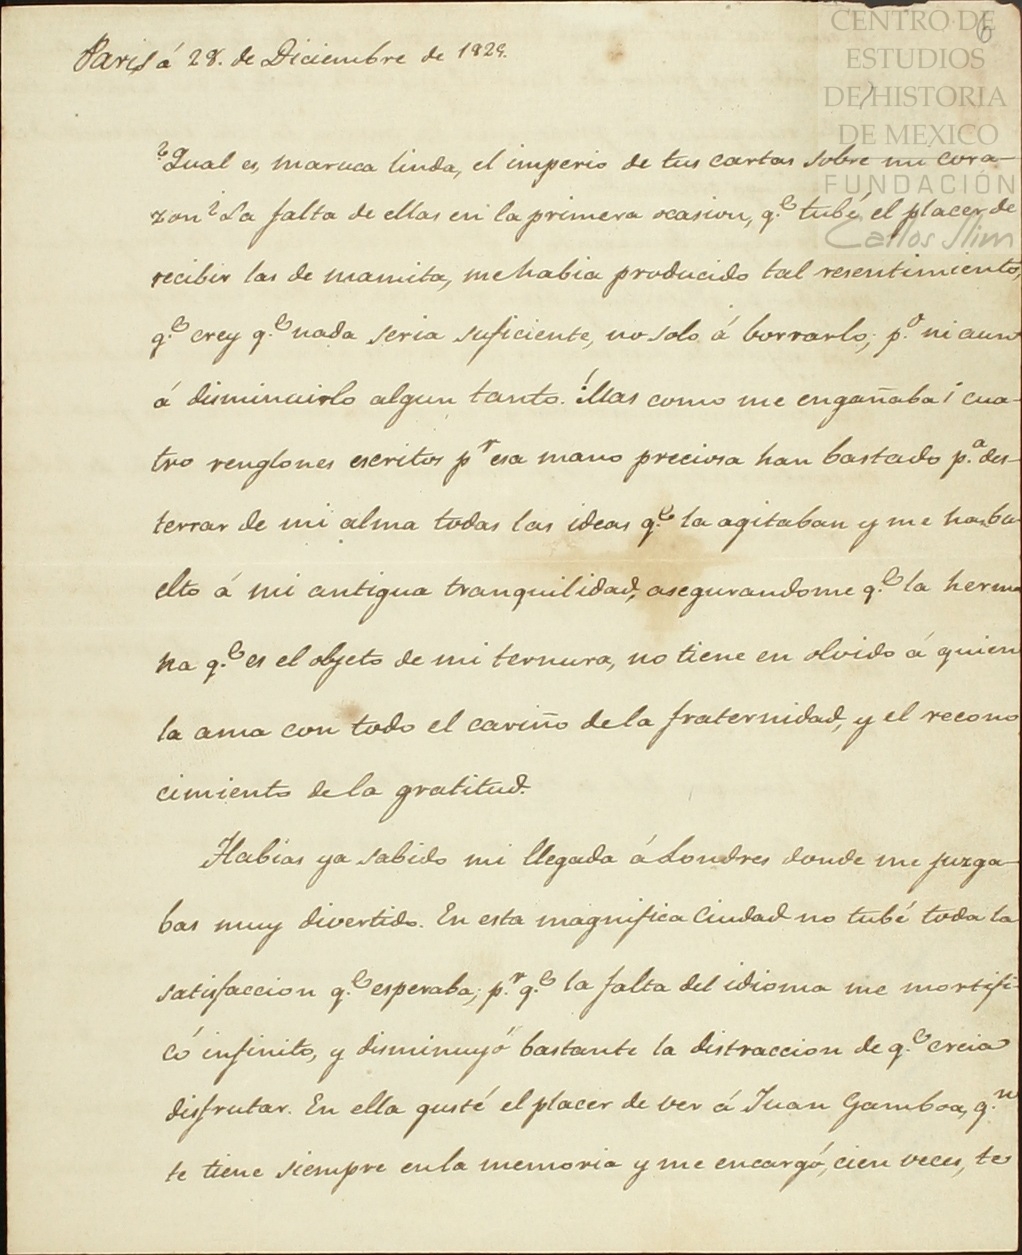 CENTRO DE
ESTUDIOS
DE HISTORIA
DE MEXICO
FUNDACIÓN
Carlos Slim
6
Paris á 28. de Diciembre de 1829.
¿Qual es, maruca linda, el imperio de tus cartas sobre mi cora-
zon? La falta de ellas en la primera ocasion, q.e tubé el placer de
recibir las de mamita, me habia producido tal resentimiento,
q.e crey q.e nada seria suficiente, no solo á borrarlo; p.o ni aun
á disminuirlo algun tanto. ¡Mas como me engañaba! cua-
tro renglones escritos p.r esa mano preciosa han bastado p.a des-
terrar de mi alma todas las ideas q.e la agitaban y me han bu-
elto á mi antigua tranquilidad, asegurandome q.e la herma
na q.e es el objeto de mi ternura, no tiene en olvido á quien
la ama con todo el cariño de la fraternidad, y el recono
cimiento de la gratitud.
Habias ya sabido mi llegada á Londres donde me juzga-
bas muy divertido. En esta magnifica Ciudad no tubé toda la
satisfaccion q.e esperaba; p.r q.e la falta del idioma me mortifi-
có infinito, y disminuyó bastante la distraccion de q.e creia
disfrutar. En ella gusté el placer de ver á Juan Gamboa, q.n
te tiene siempre en la memoria y me encargó, cien veces, te